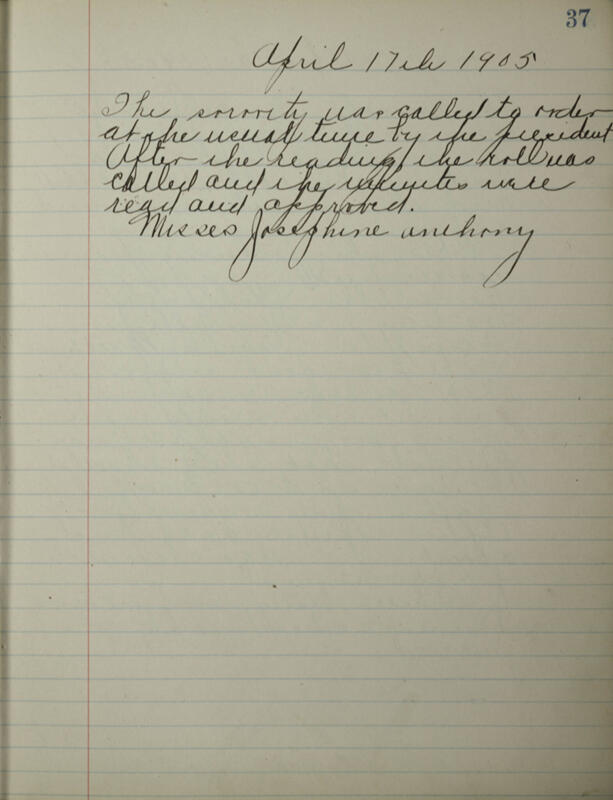 37
April 17th 1905
The sorority was called to order
at the usual time by the president
After the reading the roll was
called and the minutes were
read and approved.
Misses Josephine Anthony